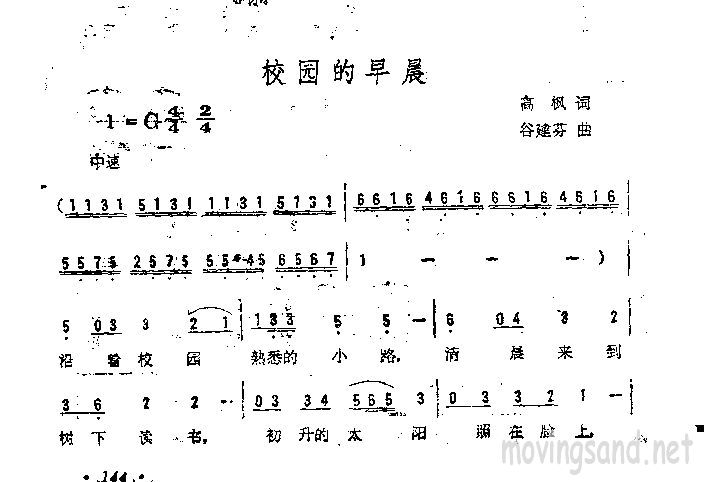 校园的早晨
1=G 4/4 2/4
高 枫 词
谷建芬 曲
中速
(1131 5131 1131 5131 | 6616 4616 6616 4616
5575 2575 55 45 6567 | 1 — — — ) |
5 03 3 21 | 133 5 5 — | 6 04 3 2 |
沿 着 校 园 熟悉的 小 路, 清 晨 来 到
3 6 2 2 — | 03 34 565 3 | 0 3 3 2 1 — |
树 下 读 书, 初 升的 太 阳 照 在 脸 上,
· 144 ·
movingsand.net